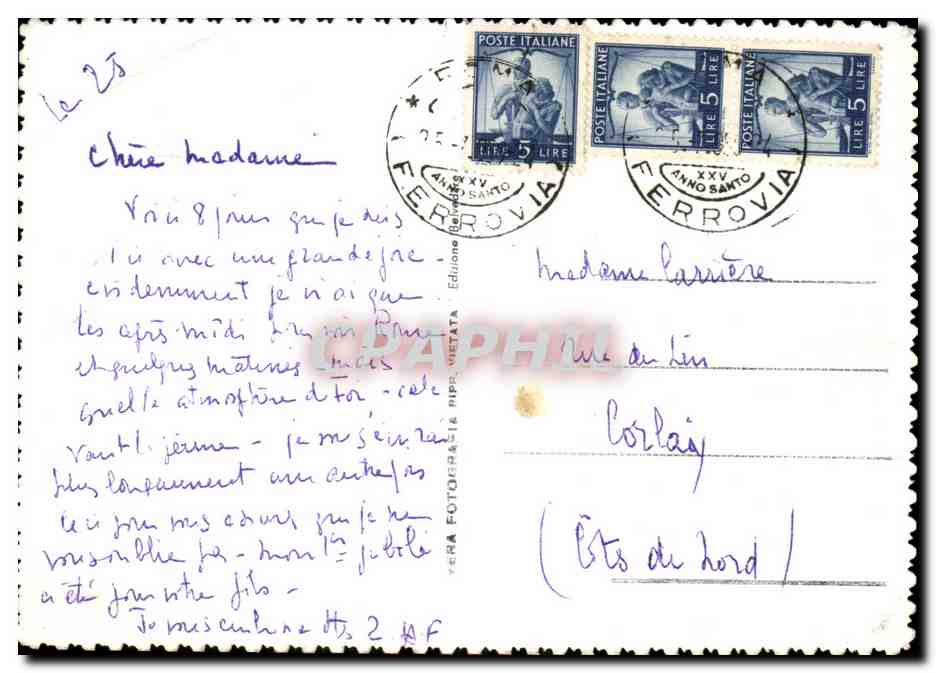 Le 25
Chère Madame
Voici 8 jours que je suis
ici avec une grande joie -
evidemment je n'ai que
les après-midi pour voir Rome
et quelques matinées mais
quelle atmosphère de foi - cela
vaut la peine - je vous écrirai
plus longuement une autre fois
ceci pour vous assurer que je ne
vous oublie pas - mon 1er jubilé
a été pour votre fils -
Je vous embrasse
Madame Carrière
Rue du Lin
Corlay
(Côtes du Nord)
POSTE ITALIANE
LIRE 5 LIRE
POSTE ITALIANE
5 LIRE
POSTE ITALIANE
5 LIRE
XXV
ANNO SANTO
FERROVIA
XXV
ANNO SANTO
FERROVIA
VERA FOTOGRAFIA RIPR. VIETATA Edizione Belvedere
CPAPHIL